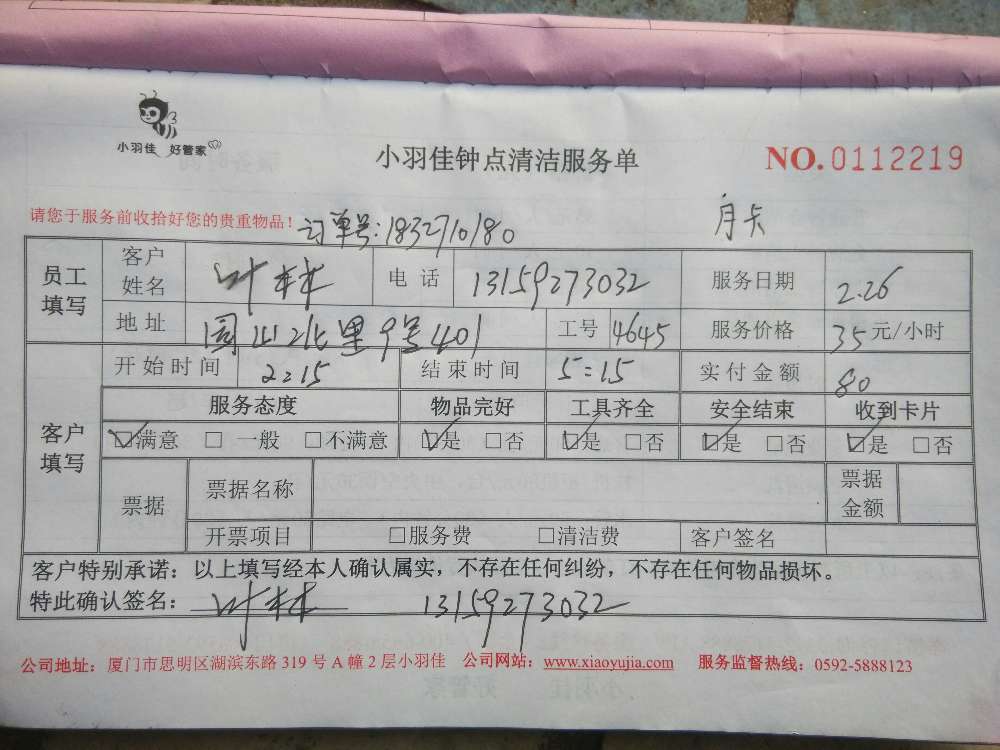 小羽佳 好管家
小羽佳钟点清洁服务单
NO.0112219
请您于服务前收拾好您的贵重物品！ 订单号:1832710180 月卡
员工填写 客户姓名 叶林 电话 13159273032 服务日期 2.26
地址 园山北里9号401 工号 4645 服务价格 35元/小时
客户填写 开始时间 2:15 结束时间 5:15 实付金额 80
服务态度 物品完好 工具齐全 安全结束 收到卡片
☑满意 □一般 □不满意 ☑是 □否 ☑是 □否 ☑是 □否 ☑是 □否
票据 票据名称 票据金额
开票项目 □服务费 □清洁费 客户签名
客户特别承诺：以上填写经本人确认属实，不存在任何纠纷，不存在任何物品损坏。
特此确认签名：叶林 13159273032
公司地址：厦门市思明区湖滨东路 319 号 A 幢 2 层小羽佳 公司网站：www.xiaoyujia.com 服务监督热线：0592-5888123